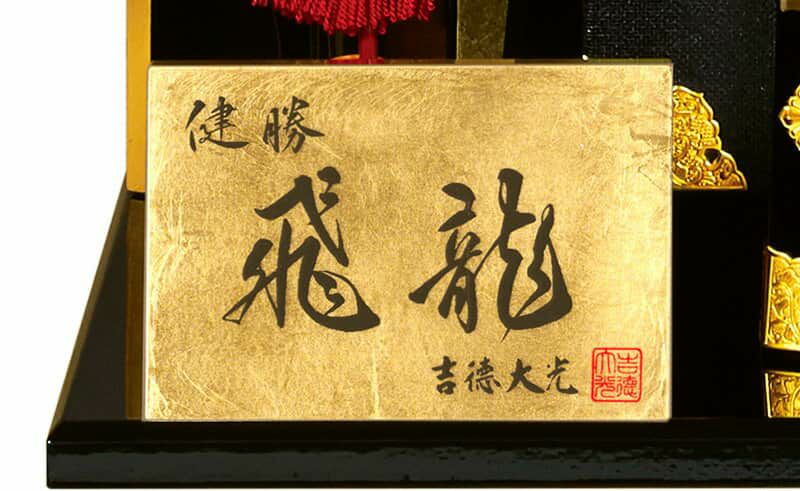 健勝
飛龍
吉德大光
吉德大光